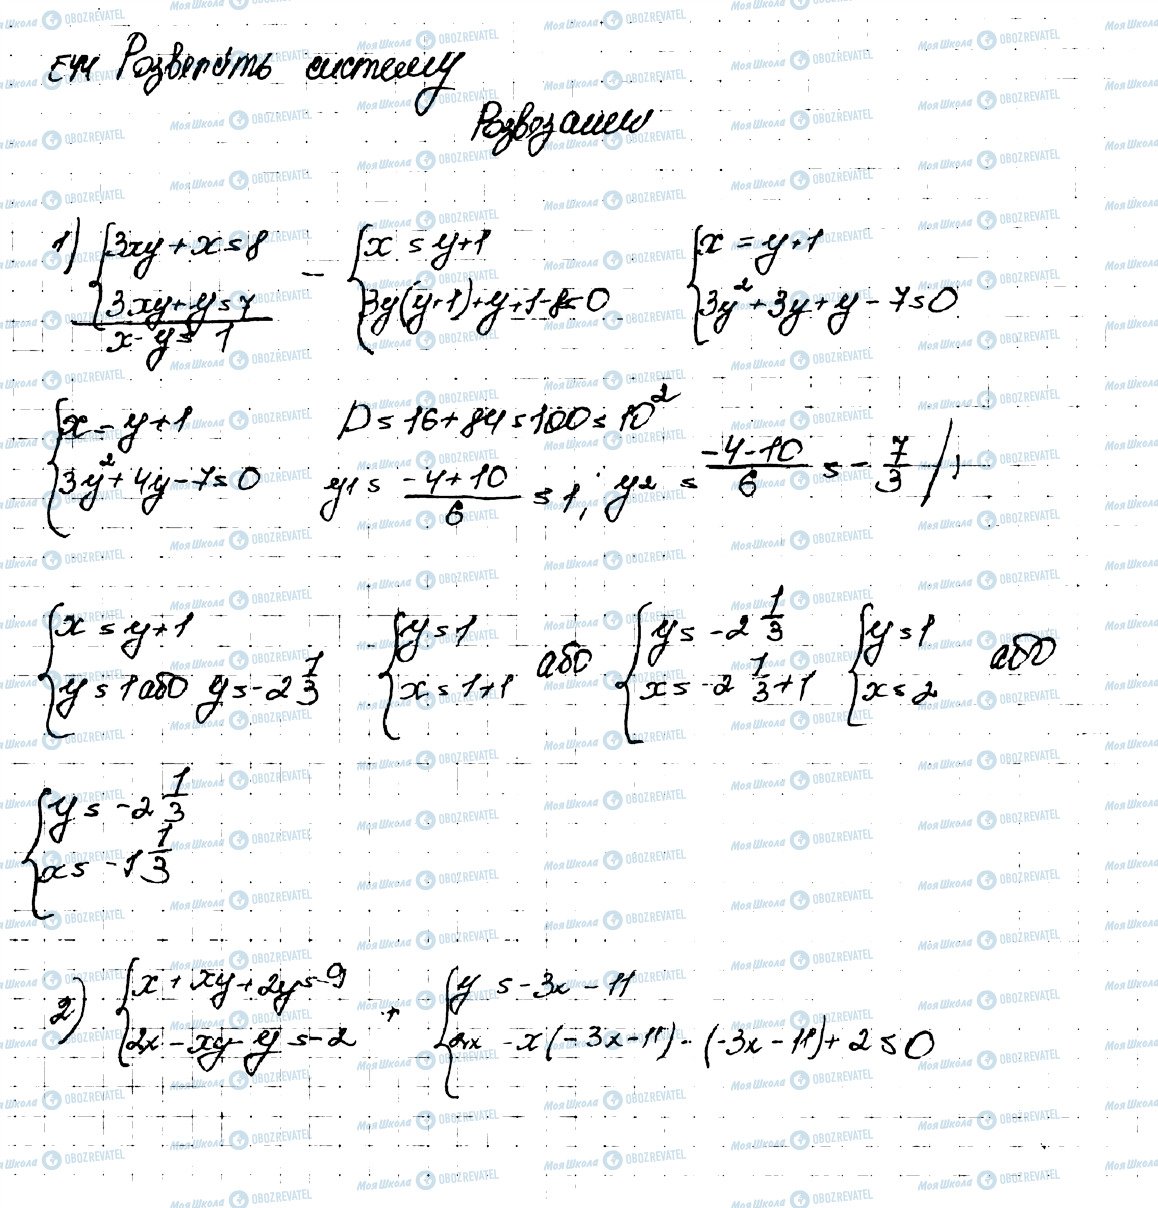 544 Розв'яжіть систему
Розв'язання
1) {3xy + x = 8
3xy + y = 7
x - y = 1
- {x = y + 1
3y(y+1) + y + 1 - 8 = 0
{x = y + 1
3y² + 3y + y - 7 = 0
{x = y + 1
3y² + 4y - 7 = 0
D = 16 + 84 = 100 = 10²
y1 = (-4 + 10)/6 = 1; y2 = (-4 - 10)/6 = -7/3
{x = y + 1
y = 1 або y = -2 1/3
{y = 1
x = 1 + 1
або
{y = -2 1/3
x = -2 1/3 + 1
{y = 1
x = 2
або
{y = -2 1/3
x = -1 1/3
2) {x + xy + 2y = -9
2x - xy - y = -2
+
{y = -3x - 11
2x - x(-3x - 11) - (-3x - 11) + 2 = 0
Моя Школа OBOZREVATEL